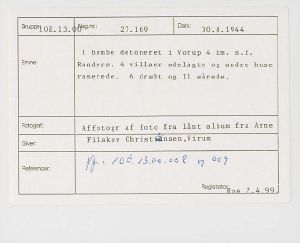 Gruppe: 10E.13.00 Neg.nr.: 27.169 Dato: 30.8.1944
Emne: 1 bombe detoneret i Vorup 4 km. s.f.
Randers. 4 villaer ødelagte og andre huse
raserede. 6 dræbt og 11 sårede.
Fotograf: Affotogr af foto fra lånt album fra Arne
Giver: Filskov Christiansen,Virum
Referencer: Jf. 10E.13.00.008 og 009
Registrator: 7.4.99.